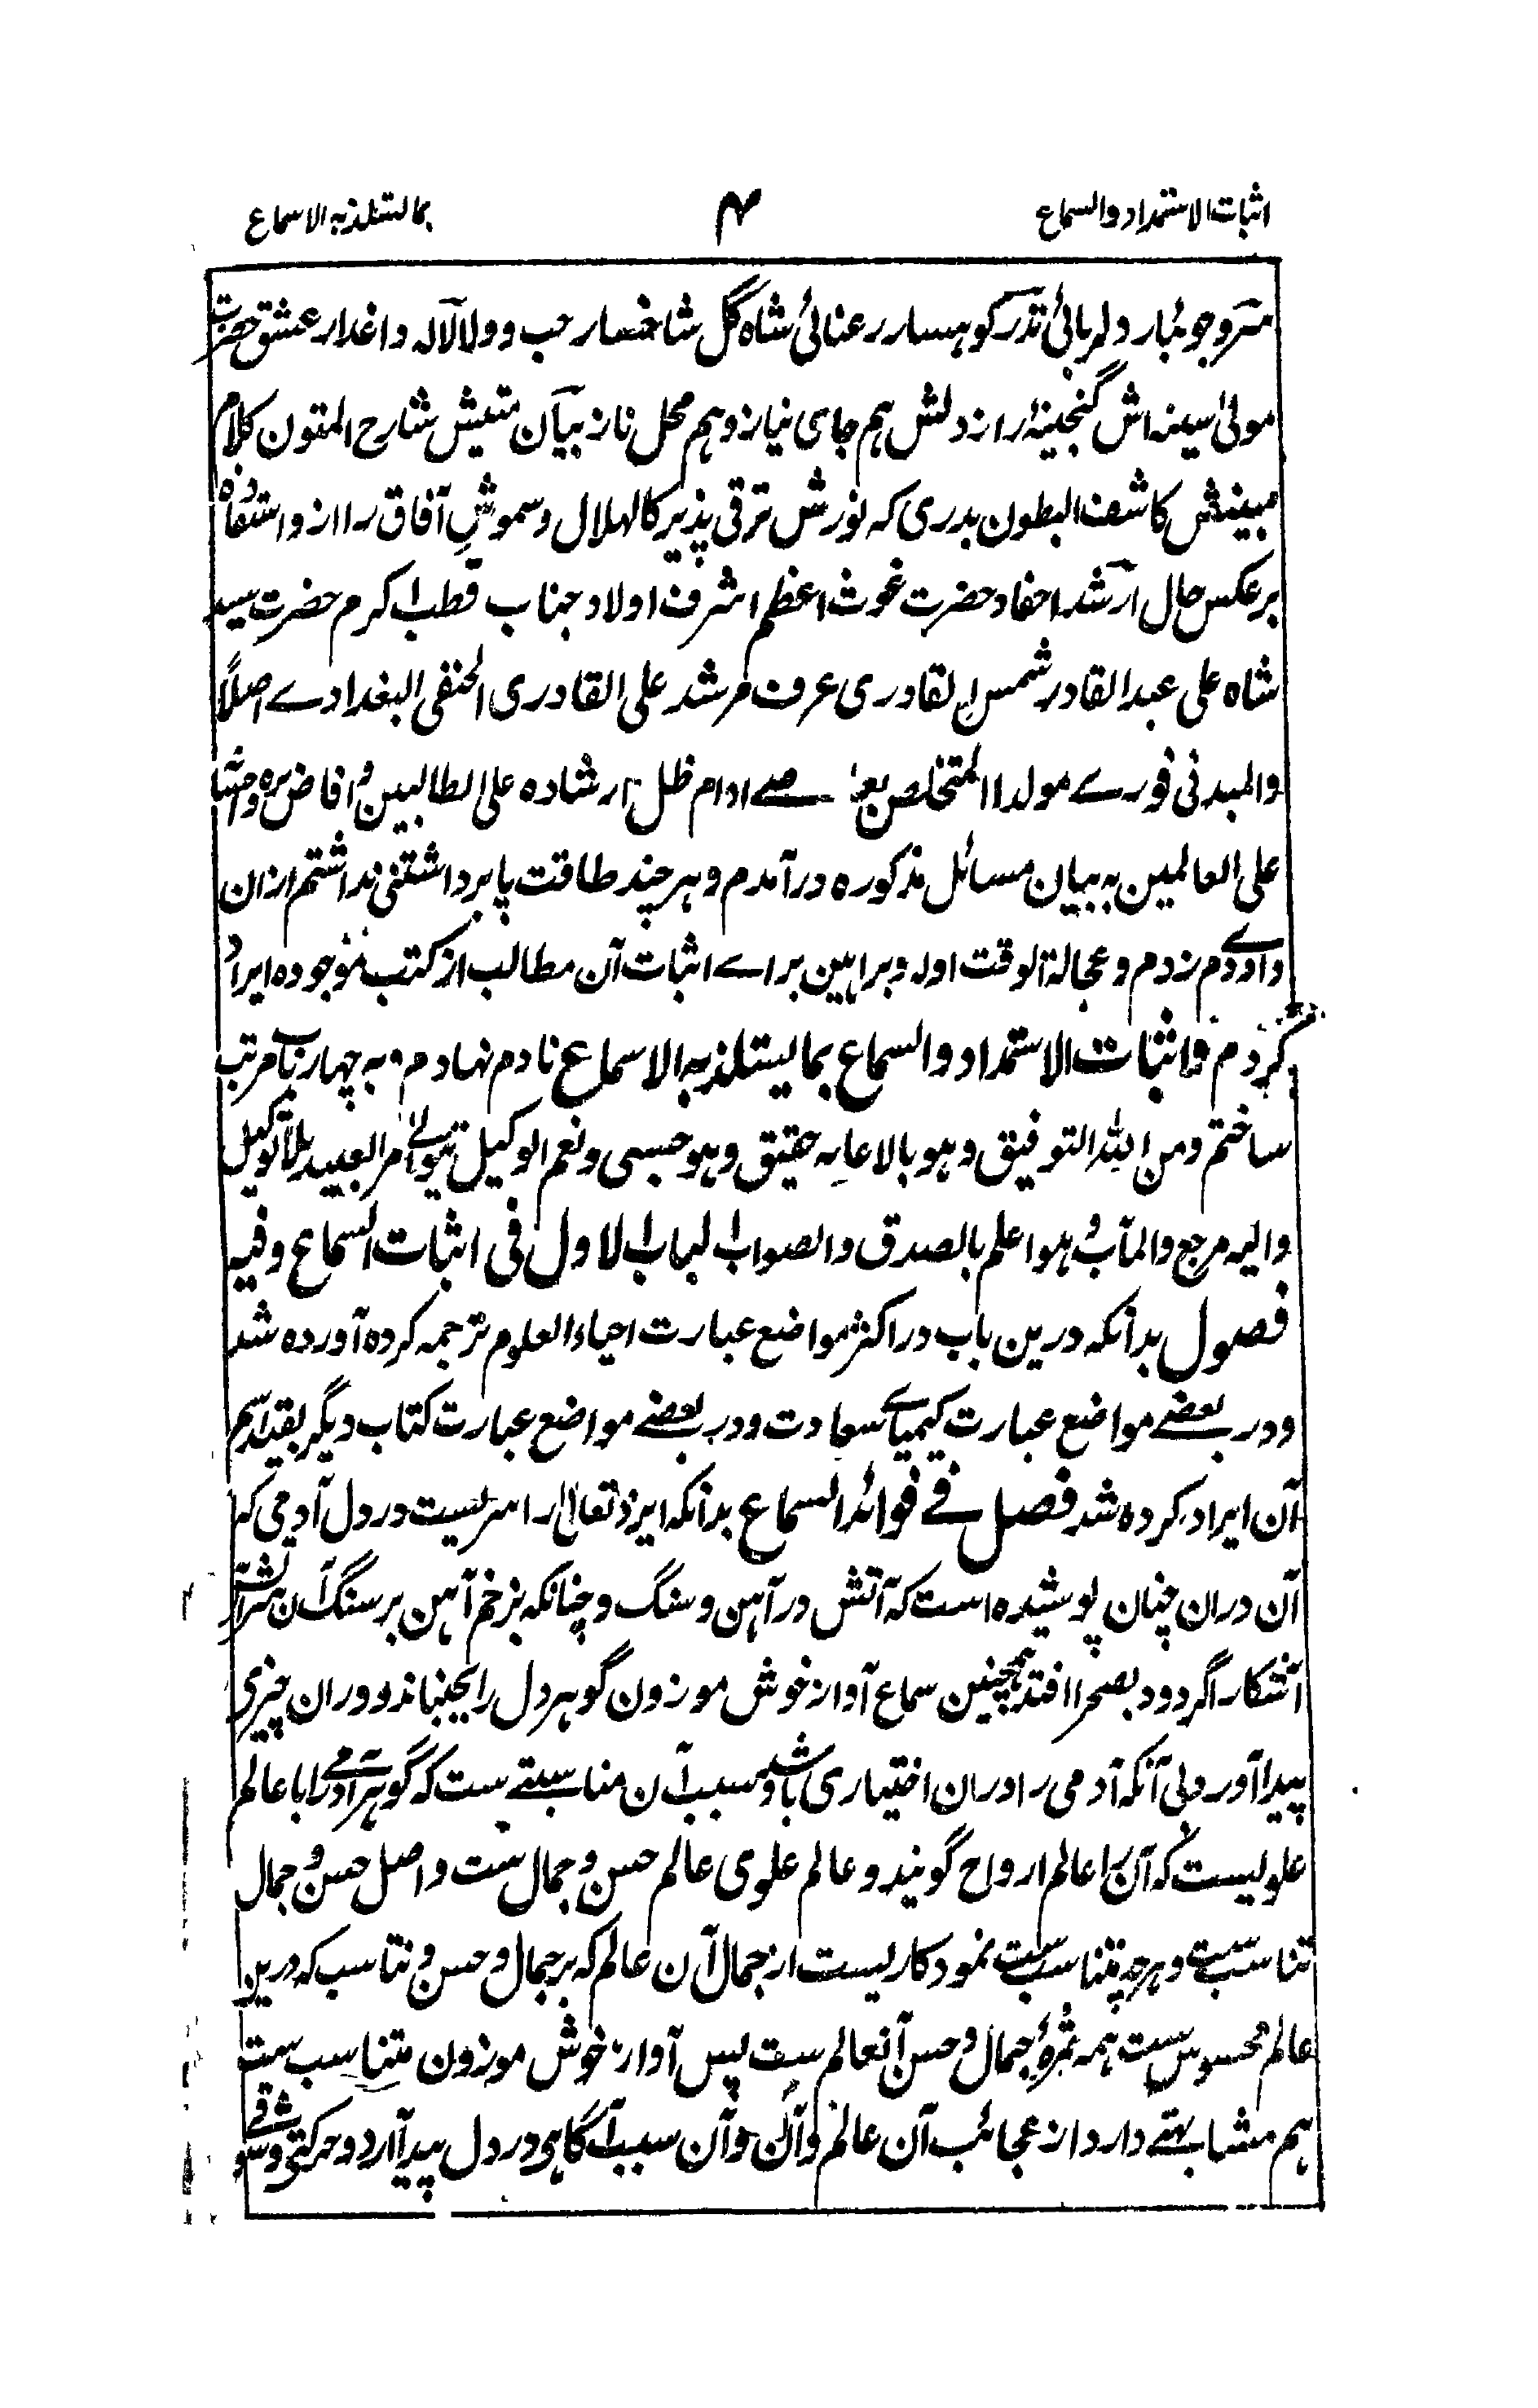 اثبات الاستمداد والسماع
۴
بما یستلذ به الاسماع
سرو جوئبار دلربائی تذرو کوهسار رعنائی شاه گل شاخسار حب وولا لآله داغدار عشق حضرت
مولیٰ سینه اش گنجینهٔ راز دلش هم جای نیاز وهم محل ناز بیآن متینش شارح المتون کلام
مبینش کاشف البطون بدری که نورش ترقی پذیر کالهلال وسموشِ آفاق را از و استفاده
برعکس حال ارشد احفاد حضرت غوث اعظم اشرف اولاد جناب قطب اکرم حضرت سید
شاه علی عبدالقادر شمس القادری عرف مرشد علی القادری الحنفی البغدادے اصلاً
والمیدنی فورے مولدا المتخلص بعاصے ادام ظل ارشاده علی الطالبین و افاض بره
علی العالمین به بیان مسائل مذکوره درآمدم و هر چند طاقت پا برداشتنی نداشتم ازان
وادی دم زدم و عجالة الوقت اوله وبراهین براے اثبات آن مطالب از کتب موجوده ایراد
کردم و اثبات الاستمداد والسماع بما یستلذ به الاسماع نادم نهادم و به چهار باب مرتب
ساختم ومن الله التوفیق وهو بالاعانه حقیق وهو حسبی ونعم الوکیل یتولے امر العبید بلا توکیل
والیه مرجع والمآب و هو اعلم بالصدق والصواب الباب الاول فی اثبات السماع وفیه
فصول بدانکه درین باب در اکثر مواضع عبارت احیاء العلوم ترجمه کرده آورده شد
ودر بعضے مواضع عبارت کیمیاے سعادت ودر بعضے مواضع عبارت کتاب دیگر بقید اسم
آن ایراد کرده شد فصل فے فوائد السماع بدانکه ایزد تعالیٰ را سریست در دل آدمی که
آن دران چنان پوشیده است که آتش در آهن و سنگ و چنانکه بزخم آهن بر سنگ آن سر آتش
آشکارا گردد و بصحرا افتد همچنین سماع آواز خوش موزون گوهر دل را بجنباند و دران چیزی
پیدا آورد بی آنکه آدمی را دران اختیاری باشد و سبب آن مناسبتے ست که گوهر آدمے را با عالم
علویست که آن را عالم ارواح گویند و عالم علوی عالم حسن و جمال ست و اصل حسن و جمال
تناسب ست و هرچه متناسب ست نمودکاریست از جمال آن عالم که هر جمال و حسن و تناسب که درین
عالم محسوس ست همه ثمرهٔ جمال و حسن آنعالم ست پس آواز خوش موزون متناسب ست
هم مشابهتے دارد از عجائب آن عالم و آن سبب آگاهی در دل پیدا آرد و حرکتی و شوقے